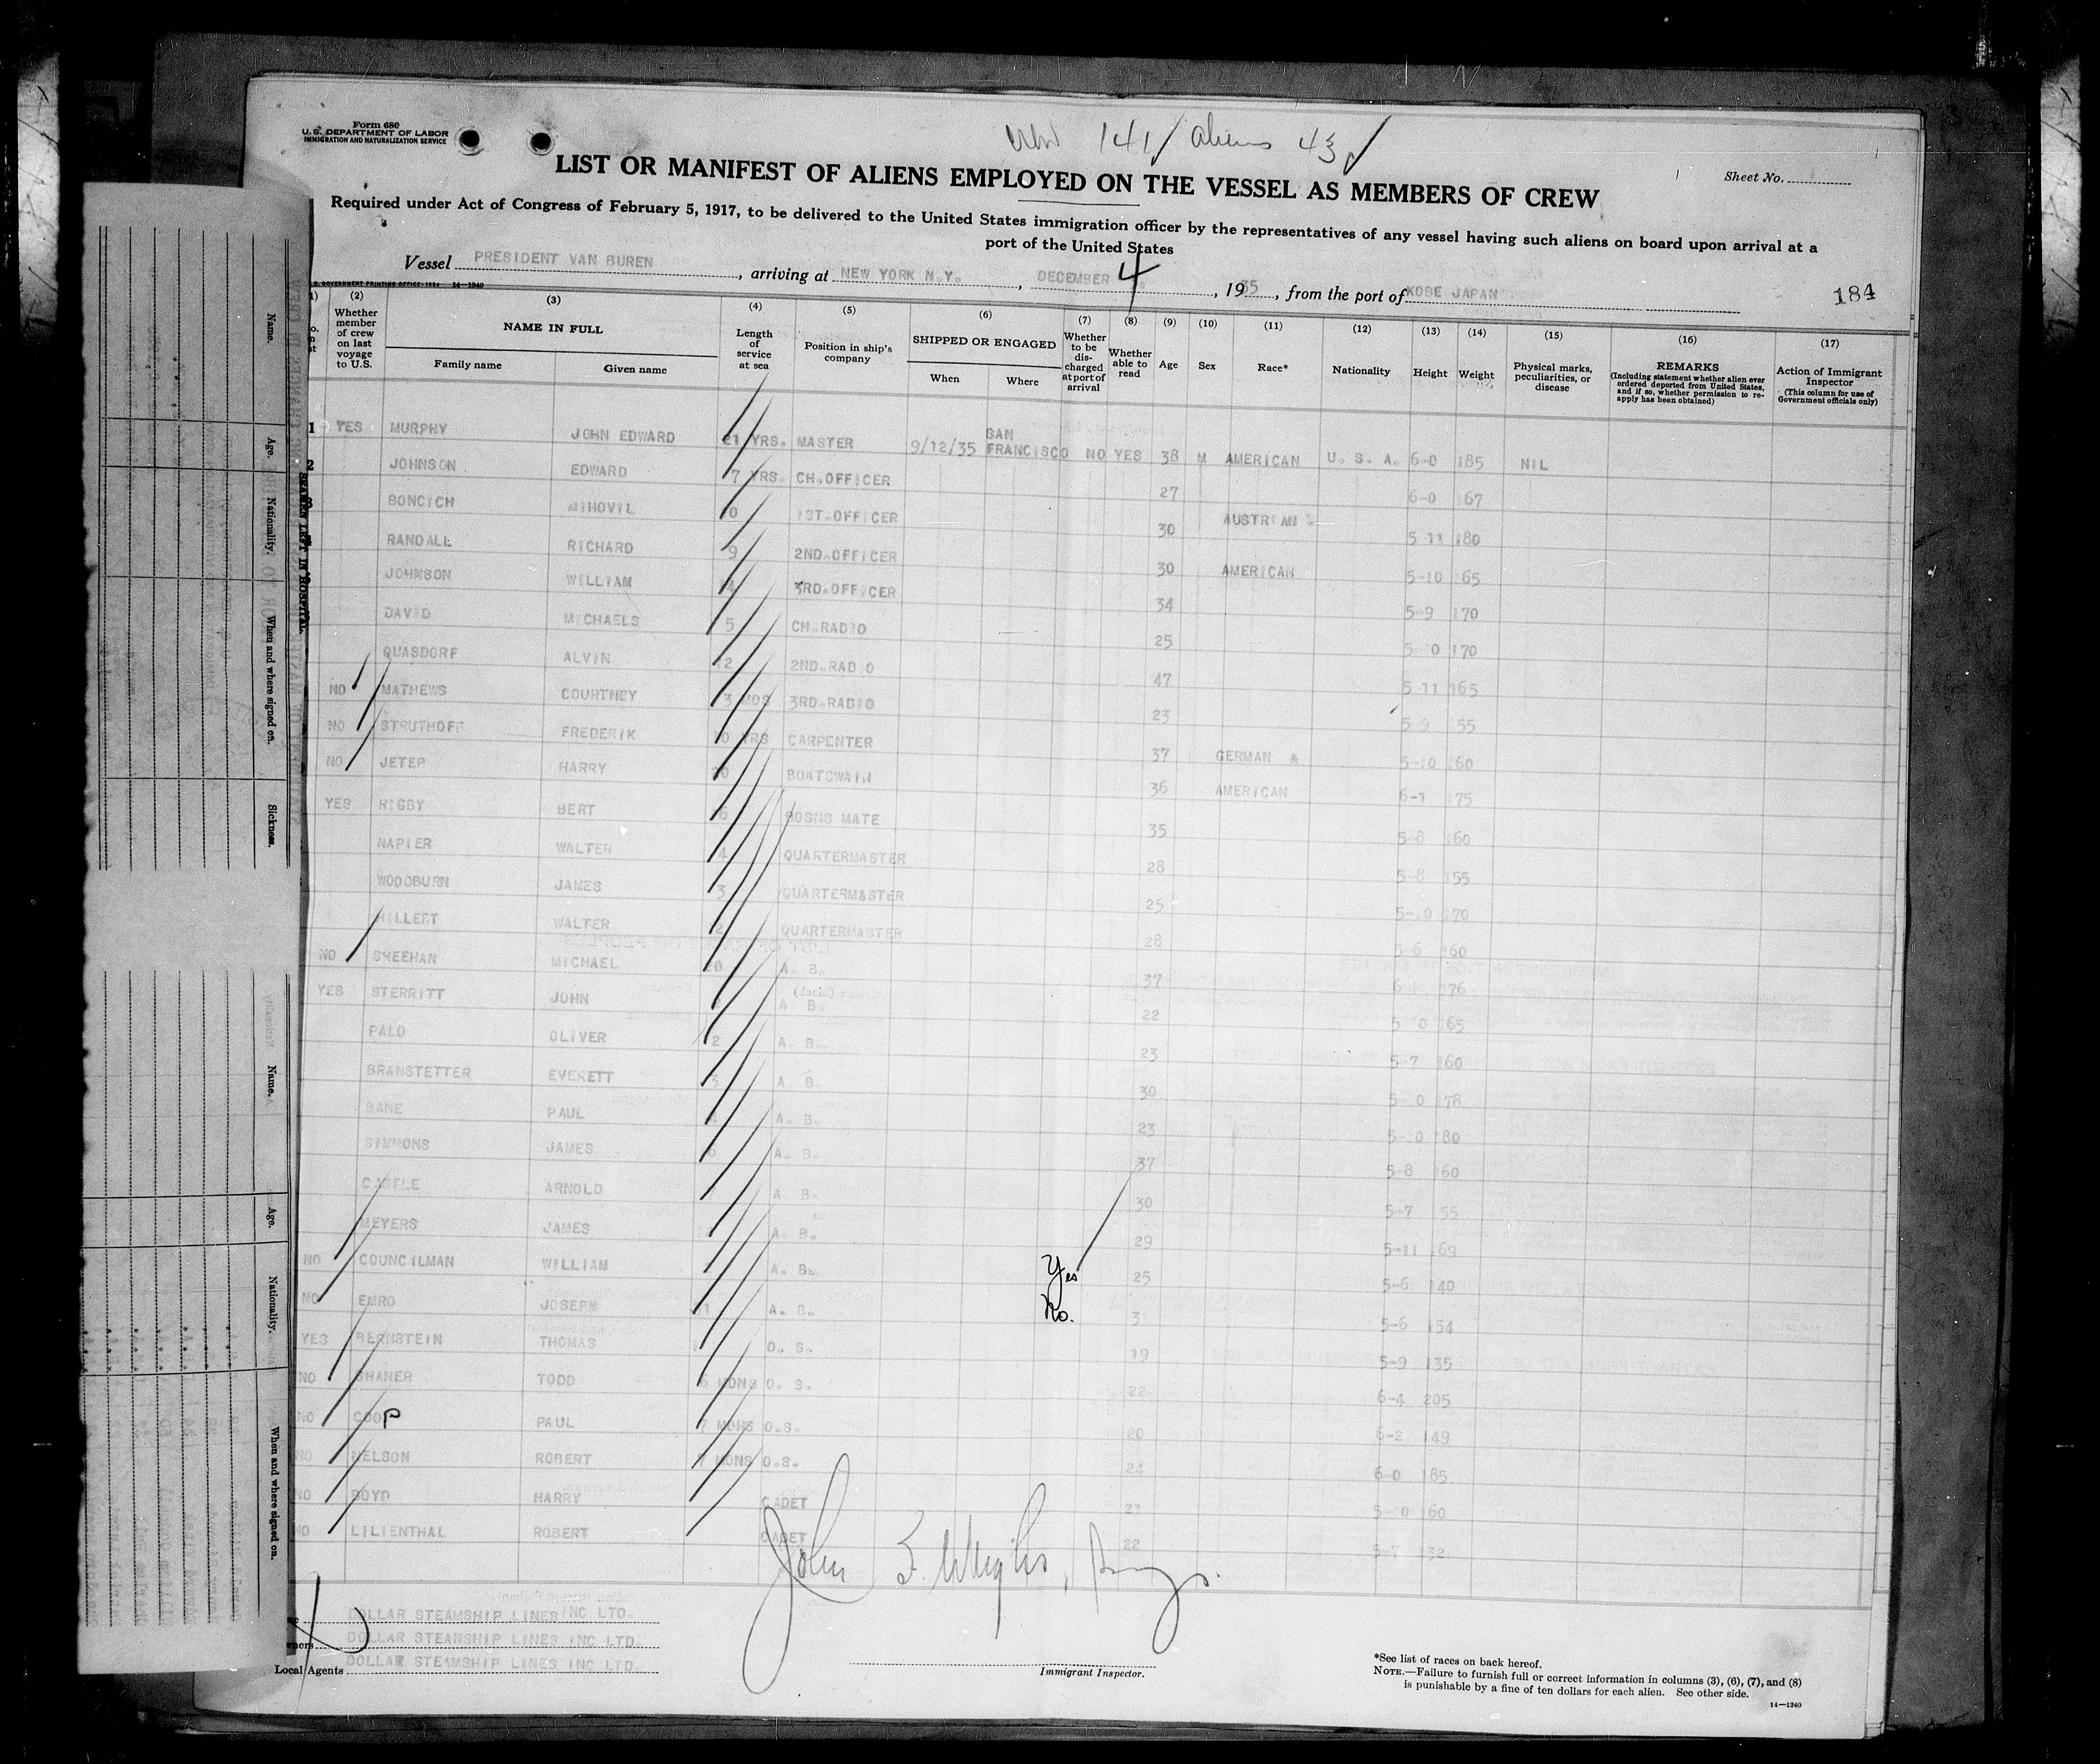 Form 680
U. S. DEPARTMENT OF LABOR
IMMIGRATION AND NATURALIZATION SERVICE
141 / aliens 43
Sheet No.
LIST OR MANIFEST OF ALIENS EMPLOYED ON THE VESSEL AS MEMBERS OF CREW
Required under Act of Congress of February 5, 1917, to be delivered to the United States immigration officer by the representatives of any vessel having such aliens on board upon arrival at a
port of the United States
Vessel PRESIDENT VAN BUREN, arriving at NEW YORK N.Y., DECEMBER 4, 1935, from the port of KOBE JAPAN
184
(2) (3) (4) (5) (6) (7) (8) (9) (10) (11) (12) (13) (14) (15) (16) (17)
Whether member of crew on last voyage to U.S.
NAME IN FULL
Family name
Given name
Length of service at sea
Position in ship's company
SHIPPED OR ENGAGED
When
Where
Whether to be discharged at port of arrival
Whether able to read
Age
Sex
Race*
Nationality
Height
Weight
Physical marks, peculiarities, or disease
REMARKS
(Including statement whether alien ever ordered deported from United States, and if so, whether permission to reapply has been obtained)
Action of Immigrant Inspector
(This column for use of Government officials only)
1 YES MURPHY JOHN EDWARD 21 YRS. MASTER 9/12/35 SAN FRANCISCO NO YES 38 M AMERICAN U. S. A. 6-0 185 NIL
2 JOHNSON EDWARD 7 YRS. CH.OFFICER 27 6-0 167
BONCICH MIHOVIL 10 1ST.OFFICER 30 AUSTRIAN 5-11 180
RANDALL RICHARD 9 2ND.OFFICER 30 AMERICAN 5-10 165
JOHNSON WILLIAM 3RD.OFFICER 34 5-9 170
DAVID MICHAELS 5 CH.RADIO 25 5-10 170
QUASDORF ALVIN 12 2ND.RADIO 47 5-11 165
NO MATHEWS COURTNEY 3 MOS 3RD.RADIO 23 5-9 155
NO STRUTHOFF FREDERIK YRS CARPENTER 37 GERMAN 5-10 160
NO JETER HARRY BOATSWAIN 36 AMERICAN 6-1 175
YES RIGBY BERT 6 BOSNS MATE 35 5-8 160
NAPIER WALTER 4 QUARTERMASTER 28 5-8 155
WOODBURN JAMES 3 QUARTERMASTER 25 5-10 170
HILLERT WALTER 2 QUARTERMASTER 28 5-6 160
NO SHEEHAN MICHAEL 20 A. B. 37 176
YES STERRITT JOHN A. B. 22 5-10 165
PALO OLIVER 2 A. B. 23 5-7 160
BRANSTETTER EVERETT A. B. 30 178
BANE PAUL A. B. 23 5-10 180
SIMMONS JAMES A. B. 37 5-8 160
CASTLE ARNOLD A. B. 30 5-7 155
MEYERS JAMES A. B. 29 5-11 169
NO COUNCILMAN WILLIAM A. B. Yes 25 5-6 140
NO EMRO JOSEPH A. B. No. 5-6 154
YES BERNSTEIN THOMAS O. S. 19 5-9 135
NO SHANER TODD 6 MONS O. S. 22 6-4 205
NO COOP PAUL 7 MONS O.S. 20 6-2 149
NO NELSON ROBERT MONS O.S. 24 6-0 185
NO BOYD HARRY CADET 23 5-10 160
NO LILIENTHAL ROBERT CADET 22 5-7 132
DOLLAR STEAMSHIP LINES INC LTD.
DOLLAR STEAMSHIP LINES INC LTD.
Local Agents DOLLAR STEAMSHIP LINES INC LTD.
John
Immigrant Inspector.
*See list of races on back hereof.
NOTE.—Failure to furnish full or correct information in columns (3), (6), (7), and (8)
is punishable by a fine of ten dollars for each alien. See other side.
14—1240
SEAMEN LEFT IN HOSPITAL
Name.
Age.
Nationality.
When and where signed on.
Sickness.
Name.
Age.
Nationality.
When and where signed on.